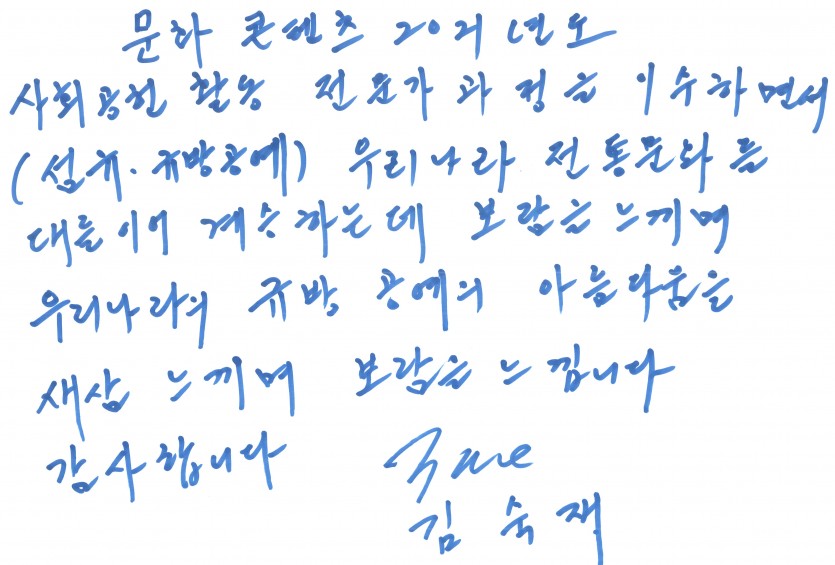 문화 콘텐츠 2021년도
사회공헌 활동 전문가 과정을 이수하면서
(섬유·규방공예) 우리나라 전통문화를
대를이어 계승하는데 보람을 느끼며
우리나라의 규방 공예의 아름다움을
새삼 느끼며 보람을 느낍니다
감사합니다
김숙재